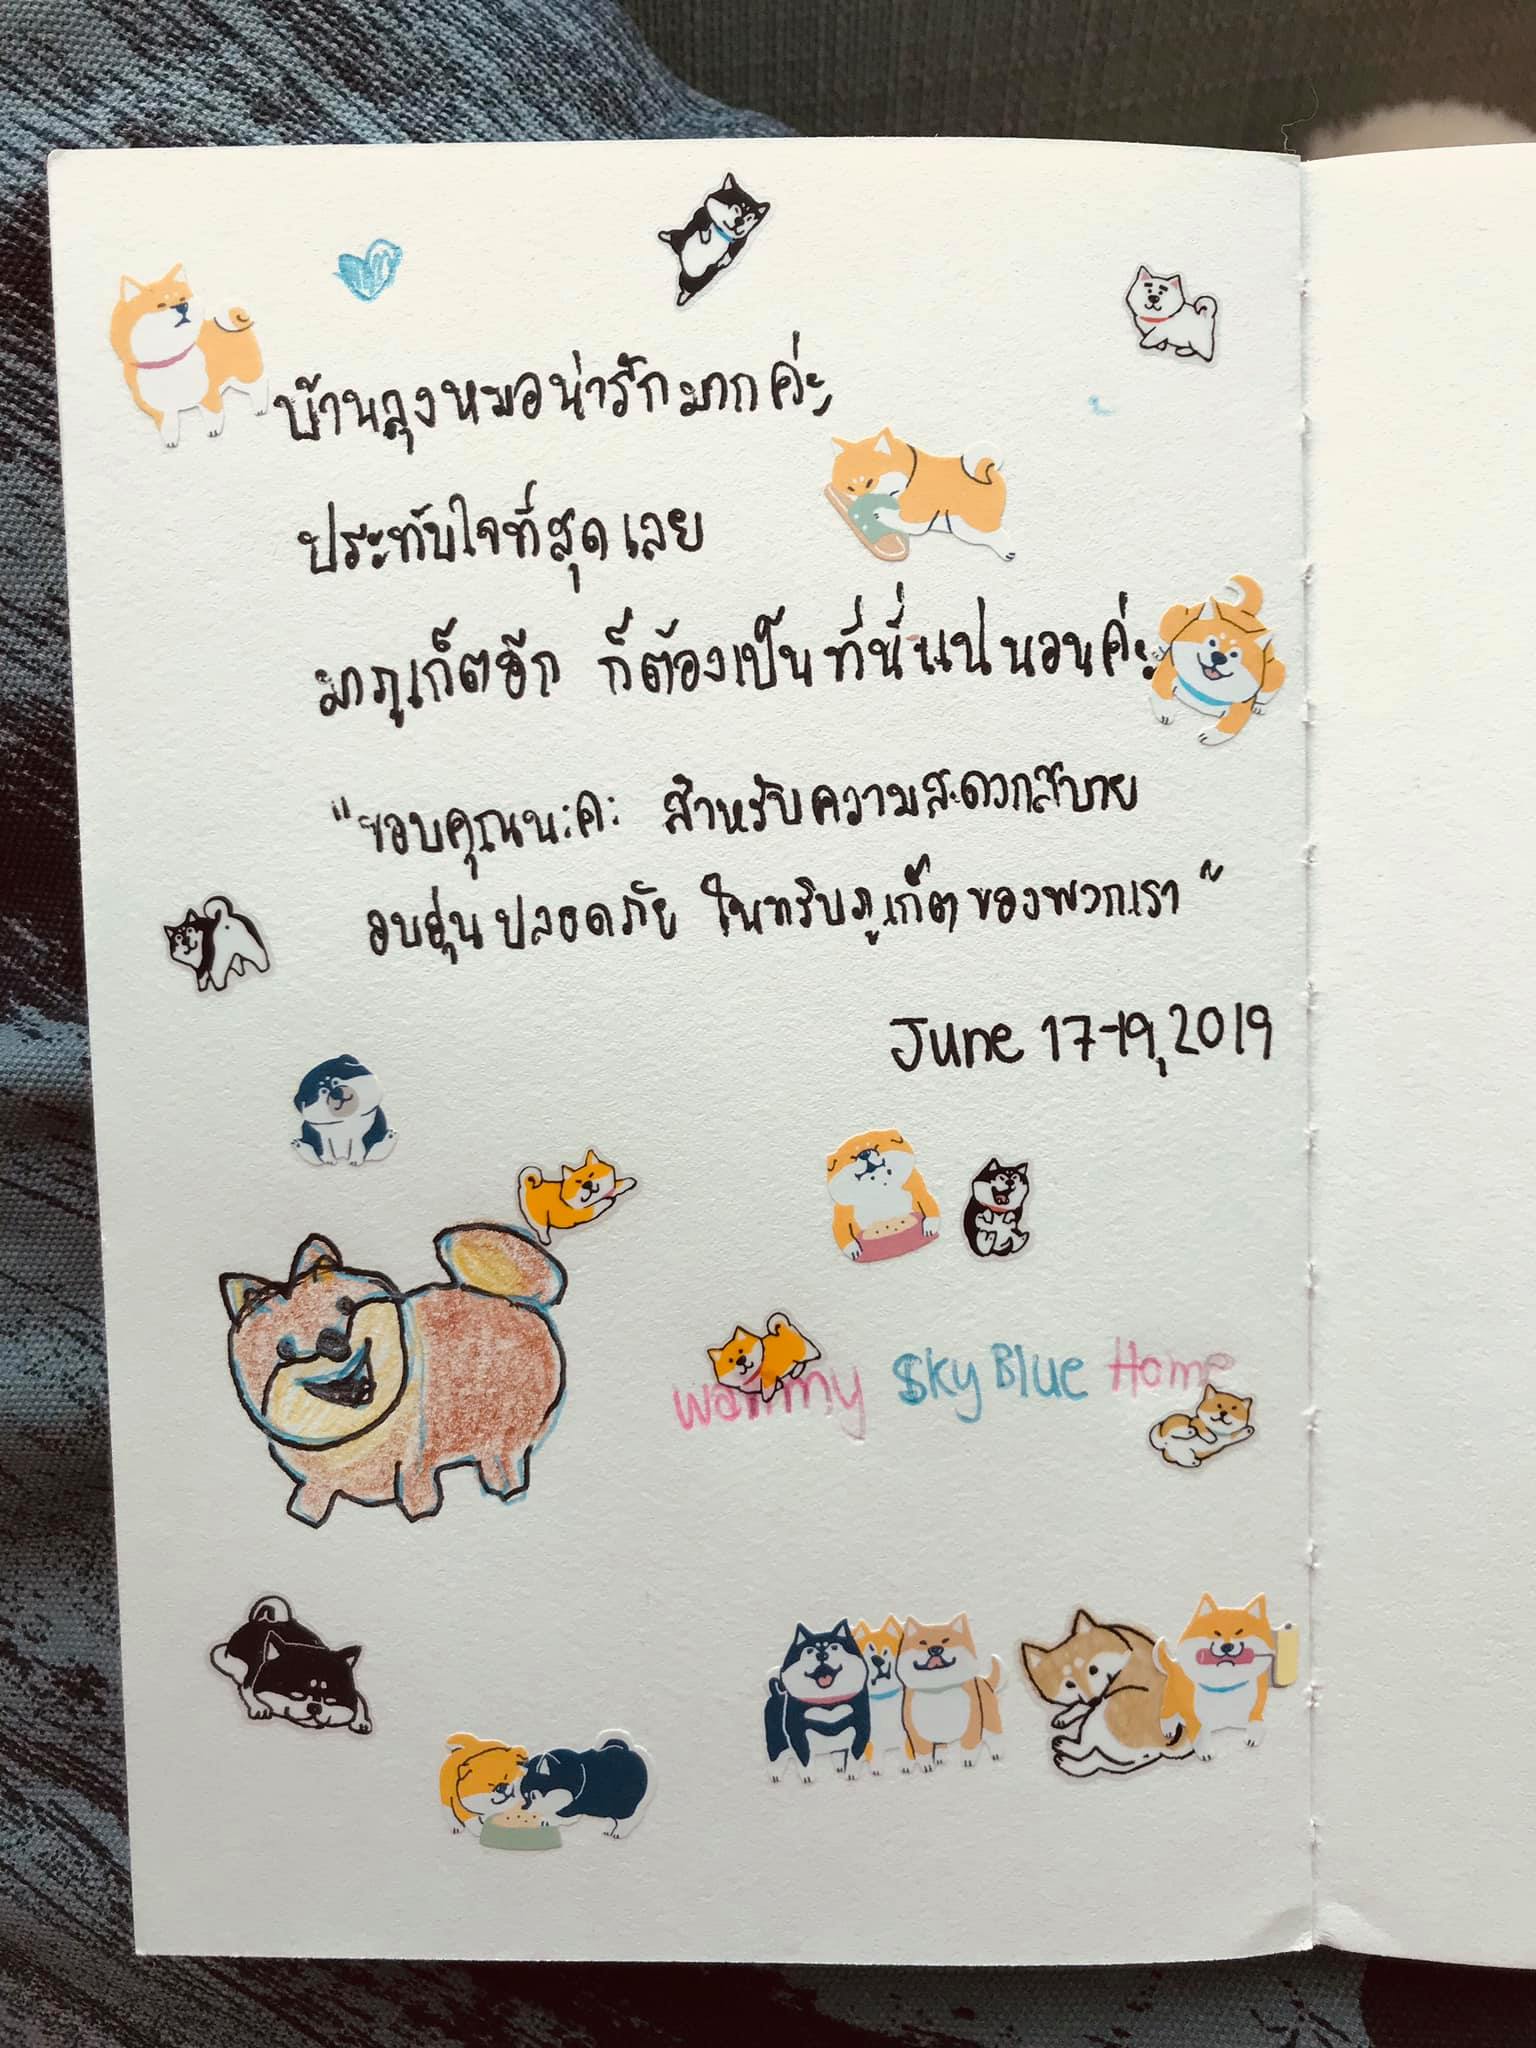 บ้านลุงหมอน่ารักมากค่ะ
ประทับใจที่สุดเลย
มาภูเก็ตอีก ก็ต้องเป็นที่นี่แน่นอนค่ะ
"ขอบคุณนะคะ สำหรับความสะดวกสบาย
อบอุ่น ปลอดภัย ในทริปภูเก็ตของพวกเรา"
June 17-19, 2019
Sky Blue Home